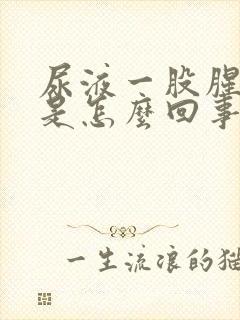 尿液一股腥
是怎麼回事
一生流浪的猫